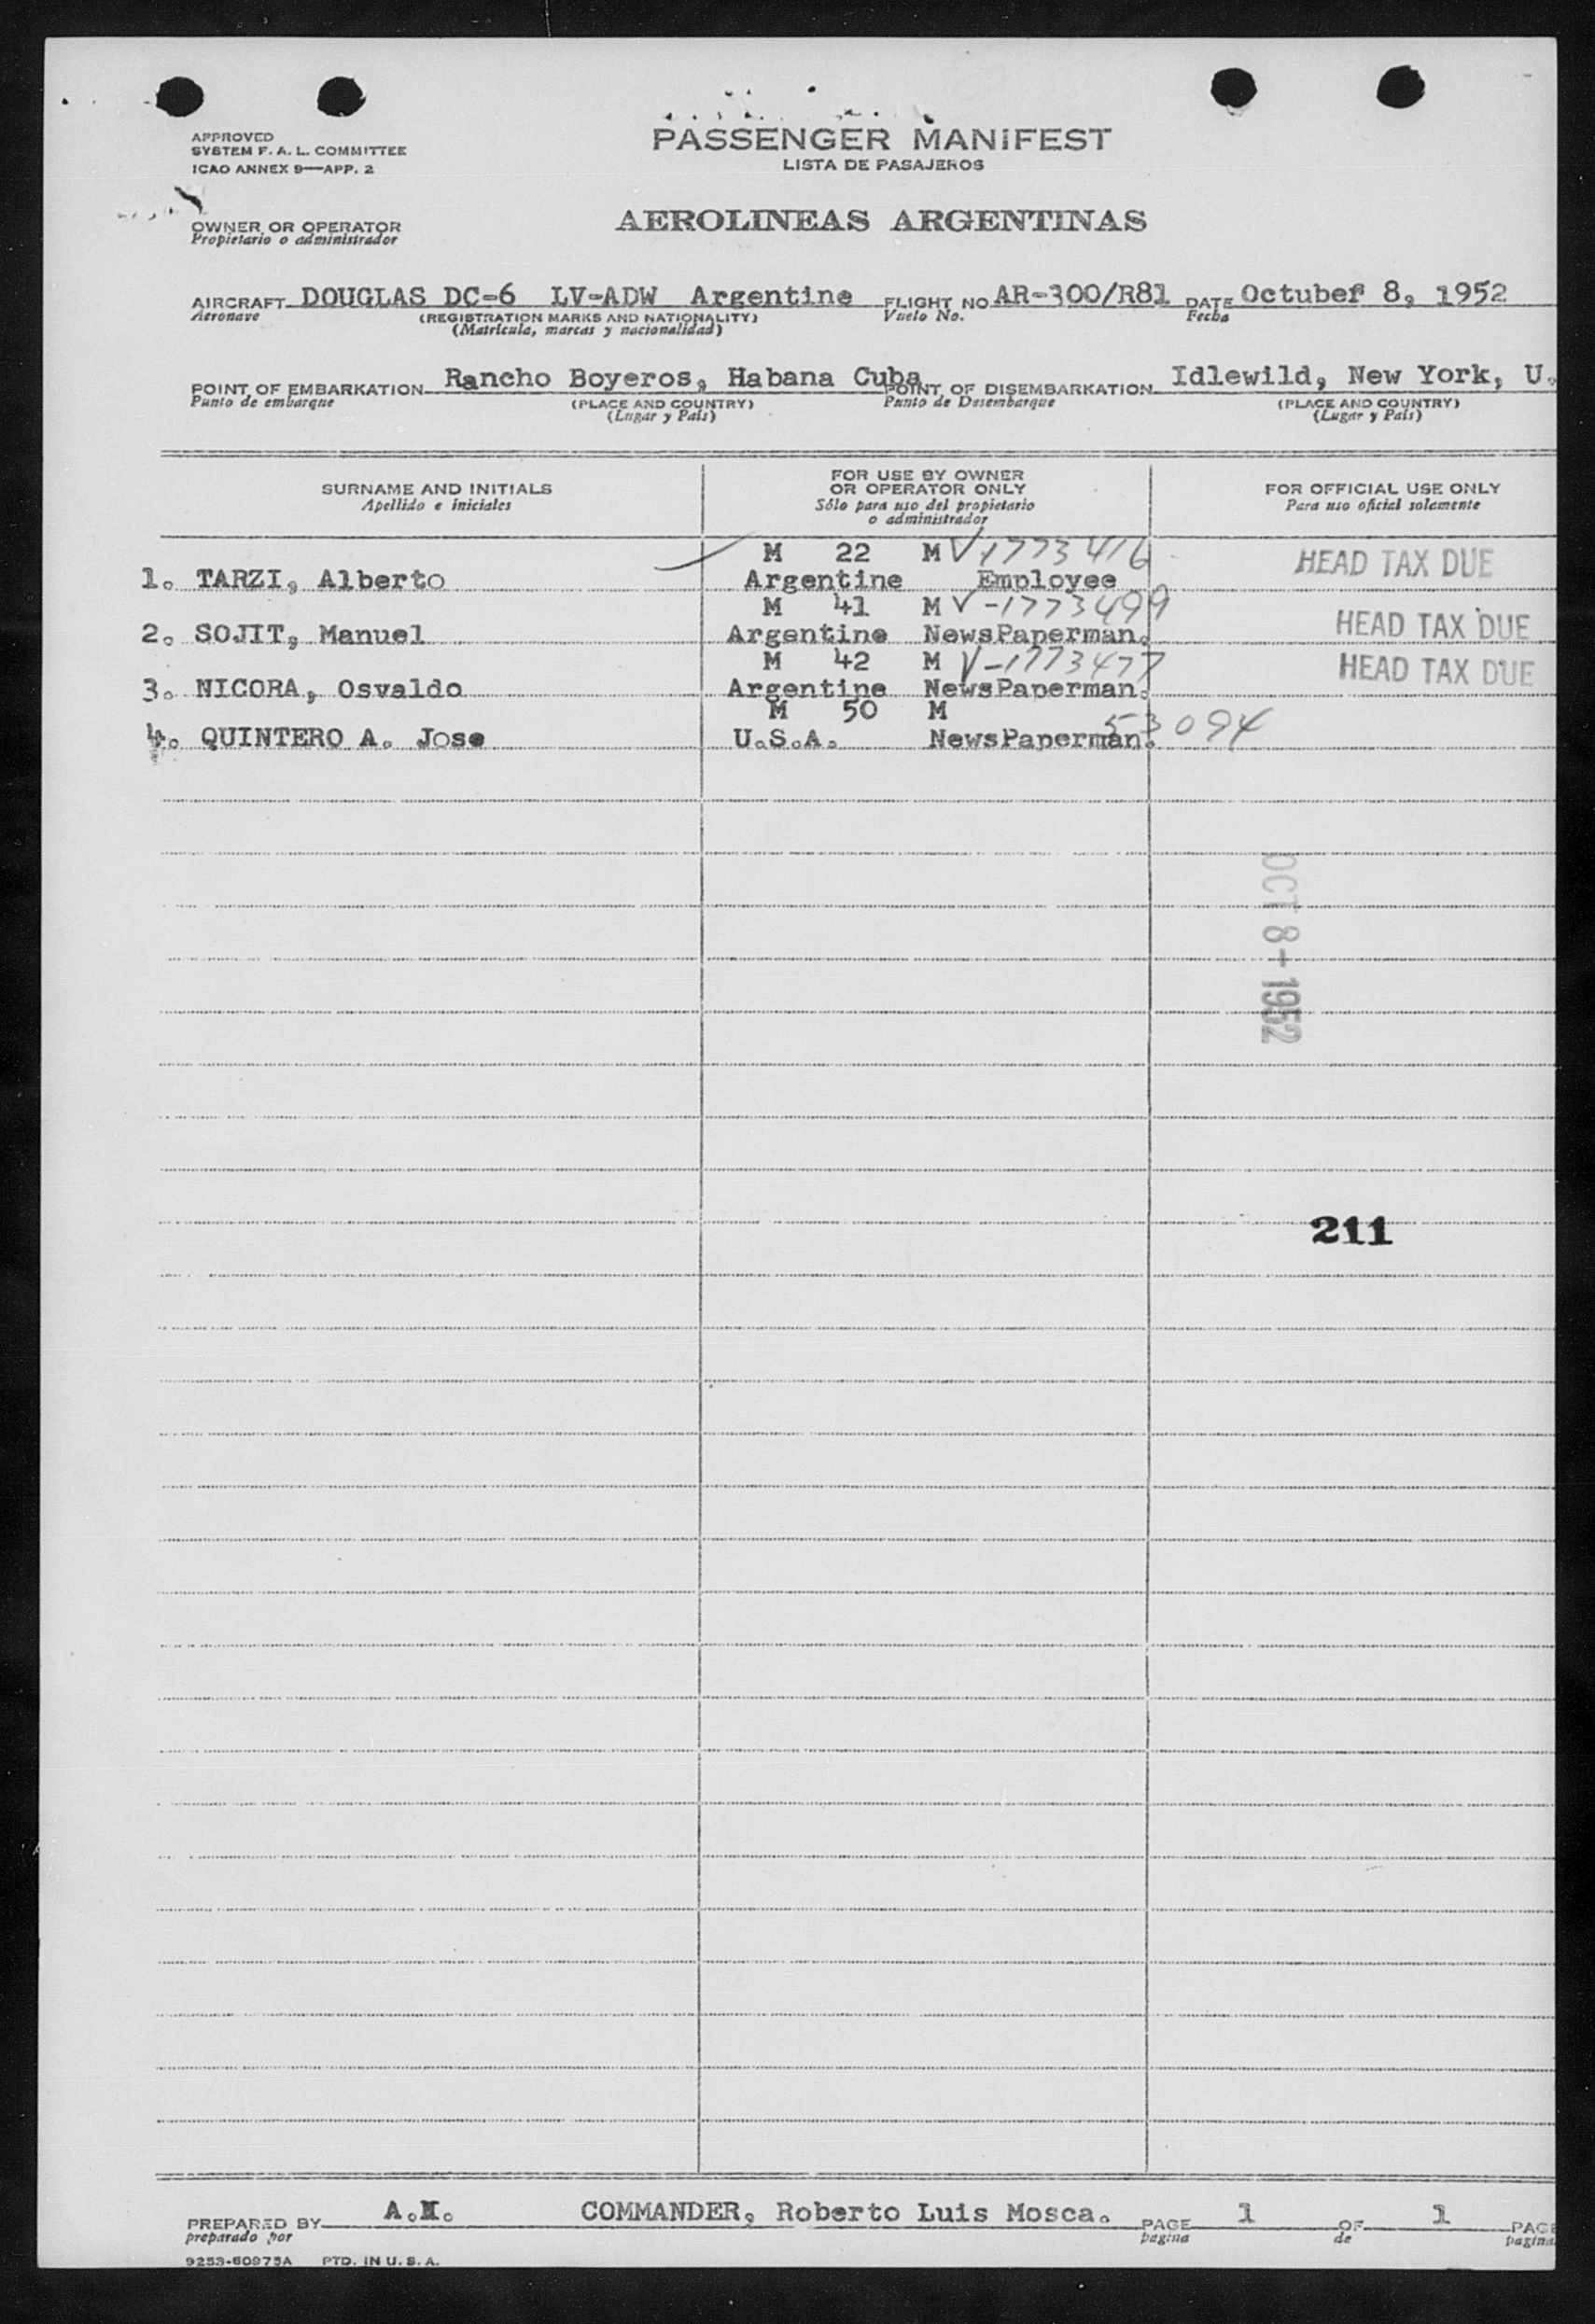 APPROVED
SYSTEM F. A. L. COMMITTEE
ICAO ANNEX 9—APP. 2
PASSENGER MANIFEST
LISTA DE PASAJEROS
OWNER OR OPERATOR
Propietario o administrador
AEROLINEAS ARGENTINAS
AIRCRAFT DOUGLAS DC-6 LV-ADW Argentine FLIGHT NO AR-300/R81 DATE Octuber 8, 1952
Aeronave (REGISTRATION MARKS AND NATIONALITY) Vuelo No. Fecha
(Matrícula, marcas y nacionalidad)
POINT OF EMBARKATION Rancho Boyeros, Habana Cuba POINT OF DISEMBARKATION Idlewild, New York, U.
Punto de embarque (PLACE AND COUNTRY) Punto de Desembarque (PLACE AND COUNTRY)
(Lugar y País) (Lugar y País)
SURNAME AND INITIALS
Apellido e iniciales
FOR USE BY OWNER
OR OPERATOR ONLY
Sólo para uso del propietario
o administrador
FOR OFFICIAL USE ONLY
Para uso oficial solamente
M 22 M V 1773416 HEAD TAX DUE
1. TARZI, Alberto Argentine Employee
M 41 M V-1773499 HEAD TAX DUE
2. SOJIT, Manuel Argentine NewsPaperman.
M 42 M V-1773477 HEAD TAX DUE
3. NICORA, Osvaldo Argentine NewsPaperman.
M 50 M 53094
4. QUINTERO A. Jose U.S.A. NewsPaperman.
OCT 8-1952
211
PREPARED BY COMMANDER, Roberto Luis Mosca. PAGE 1 OF 1 PAGE
preparado por pagina de pagina
9253-60975A PTD. IN U. S. A.